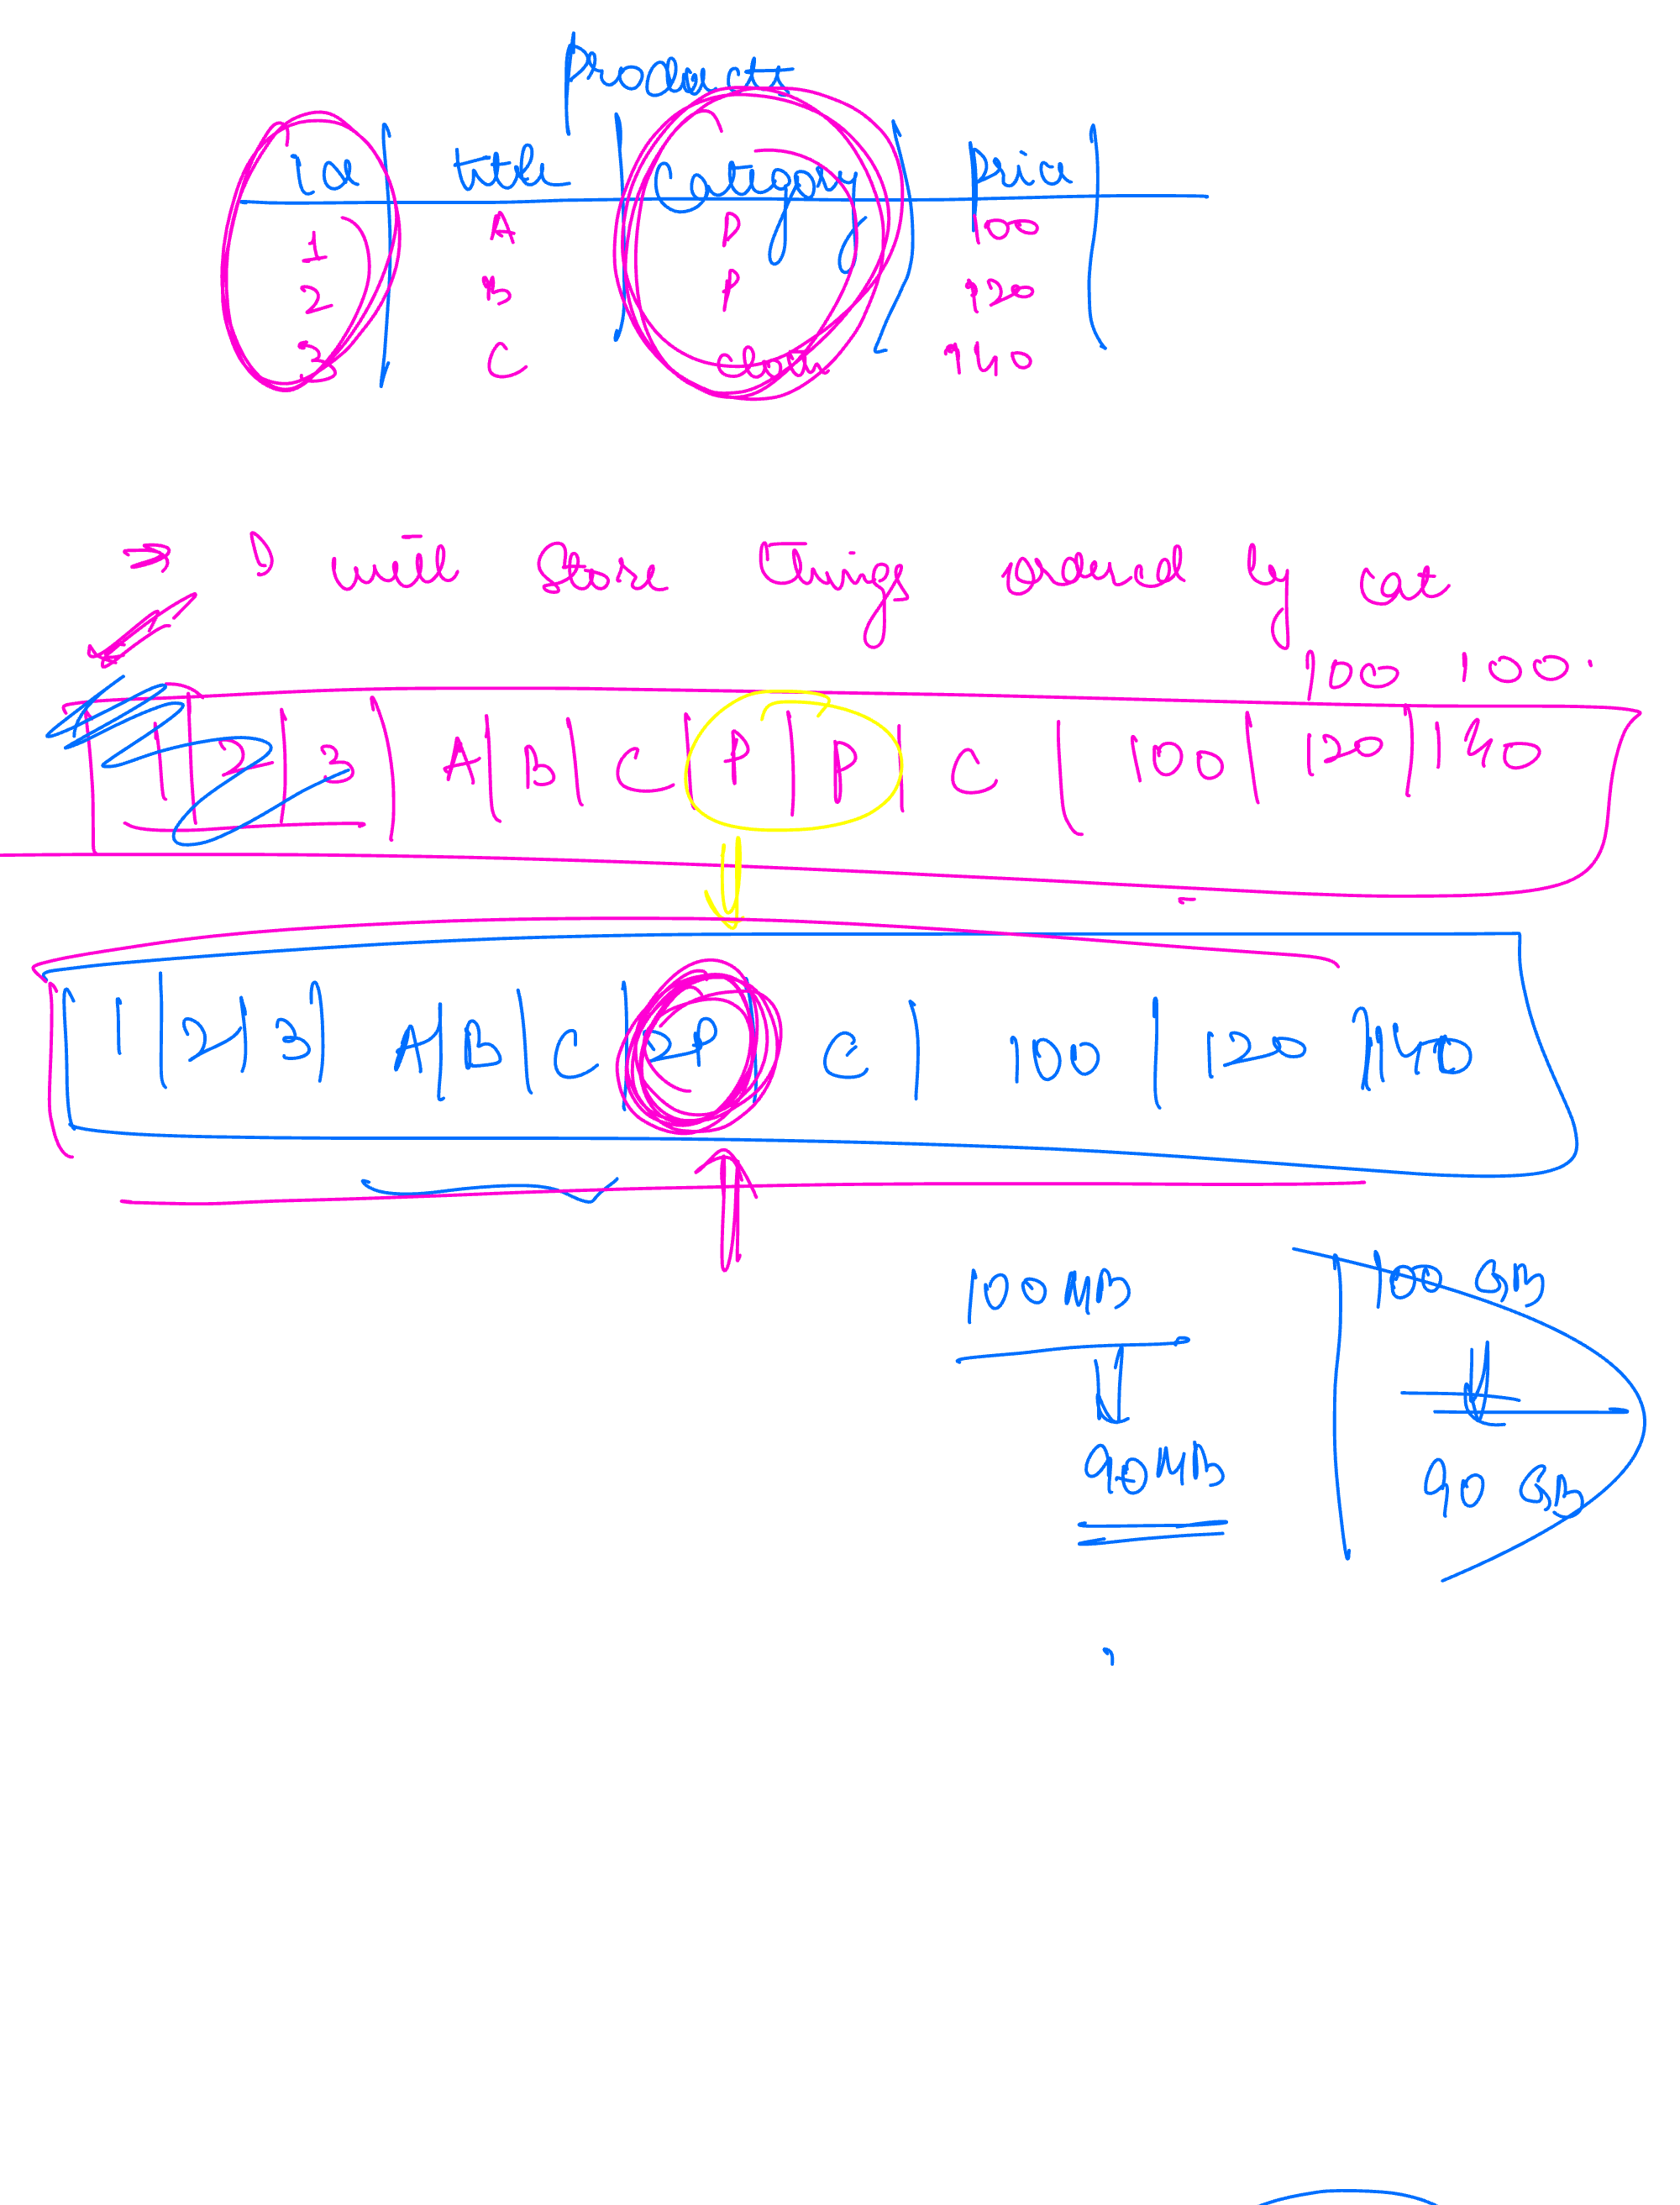 products
id title Category price
1 A P 100
2 B P 120
3 C cloth 140
→ I will store things ordered by cat
100 100.
1 | 2 | 3 | A | B | C | P | P | C | 100 | 120 | 140
1 | 2 | 3 | A | B | C | 2P | C | 100 | 120 | 140
100 MB 100 GB
90 MB 90 GB